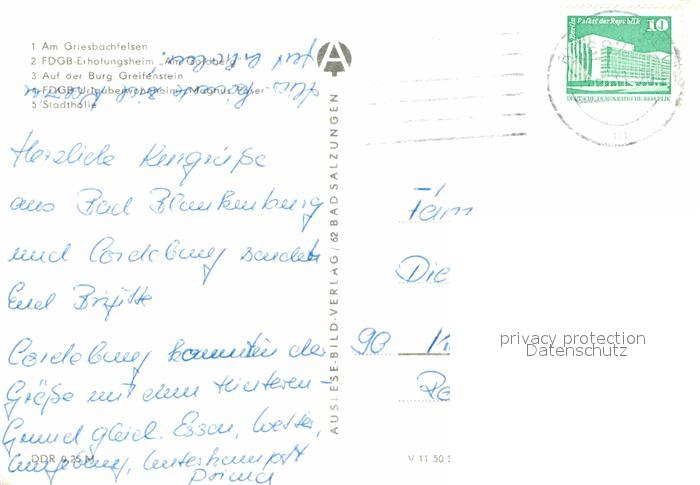 1 Am Griesbachfelsen
2 FDGB-Erholungsheim „Am Goldberg"
3 Auf der Burg Greifenstein
4 FDGB-Urlauberwohnheim „Magnus Poser"
5 Stadthalle
Herzliche
aus Bad Blankenburg
und Cordobang senden
Euch Brigitte
Cordobang
Größe mit dem Hinteren-
Grund gleich. Essen, Wetter,
Umgebung, Unterkunft
Prima
DDR 0,25 M
AUSLESE-BILD-VERLAG / 62 BAD SALZUNGEN
V 11 50
Berlin Palast der Republik 10
DEUTSCHE DEMOKRATISCHE REPUBLIK
Fam
Die
90 K
privacy protection
Datenschutz